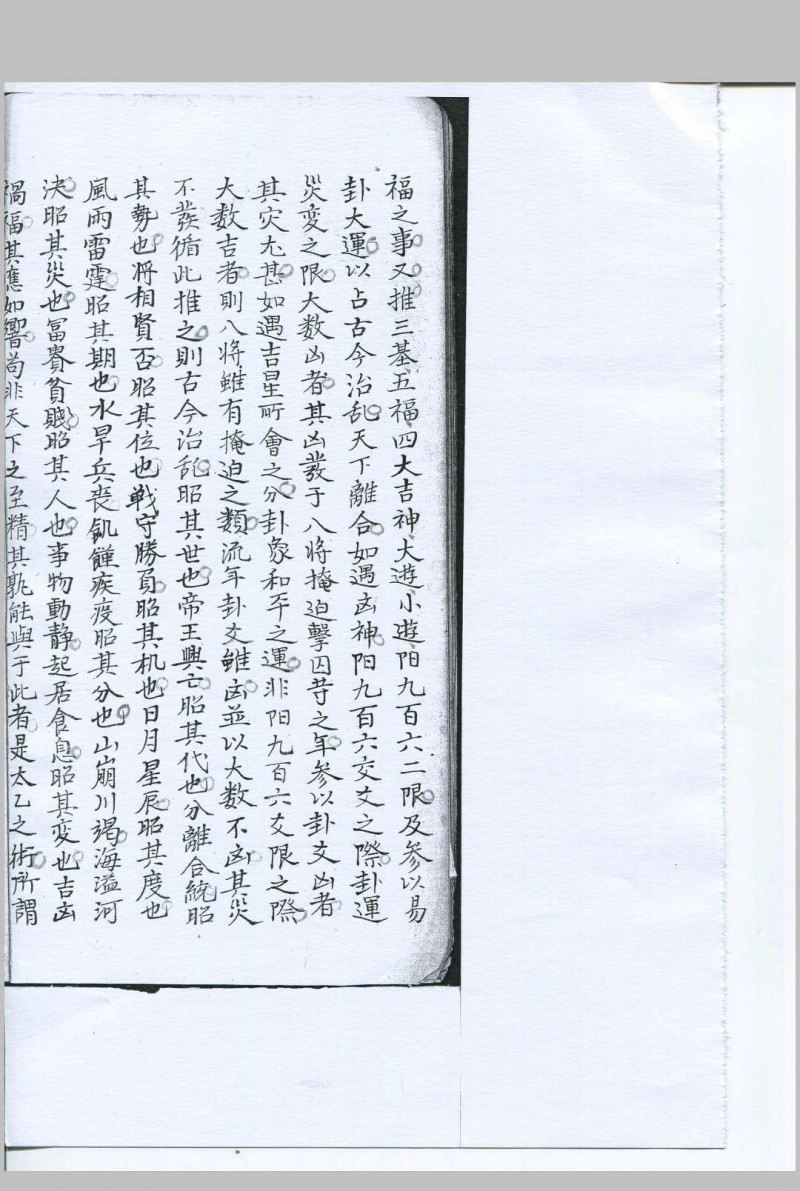 福之事又推三基五福四大吉神大遊小遊阳九百六二限及参以易
卦大運以占古今治乱天下離合如遇凶神阳九百六交爻之際卦運
災变之限大数凶者其凶發于八將掩迫擊囚等之年参以卦爻凶者
其灾尤甚如遇吉星所會之分卦象和平之運非阳九百六爻限之際
大数吉者則八將雖有掩迫之類流年卦爻雖凶並以大数不凶其災
不發循此推之則古今治乱昭其世也帝王興亡昭其代也分離合統昭
其勢也將相賢否昭其位也戦守勝負昭其机也日月星辰昭其度也
風雨雷霆昭其期也水旱兵丧飢饉疾疫昭其分也山崩川竭海溢河
决昭其災也冨貴貧賤昭其人也事物動静起居食息昭其変也吉凶
禍福其應如響苟非天下之至精其孰能與于此者是太乙之術所謂